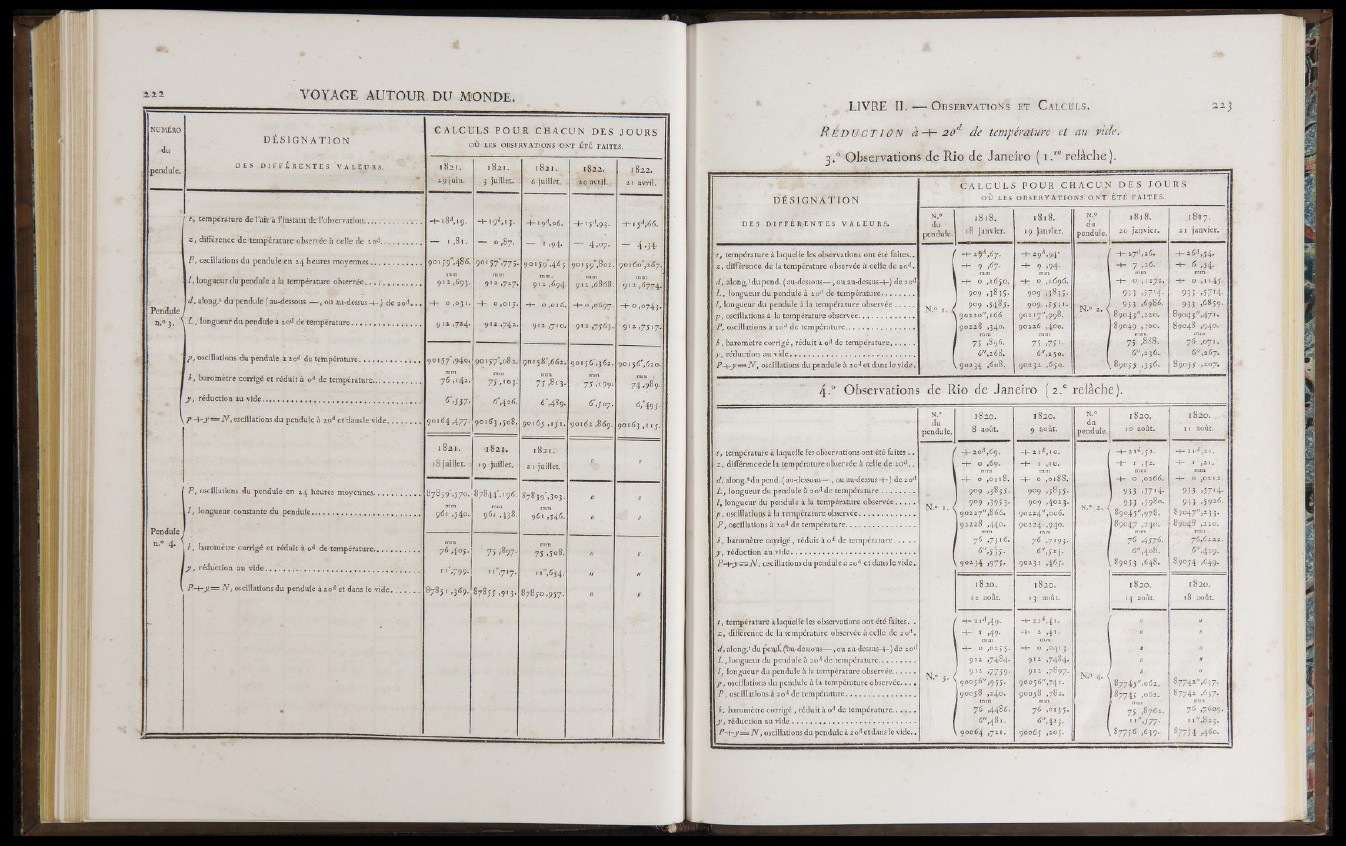 222
VOYAGE AUTOUR DU MONDE.
NUMÉRO du pendule.
DÉSIGNATION
DES DIFFÉRENTES VALEURS.
CALCULS POUR CHACUN DES JOURS
OÙ LES OBSERVATIONS ONT ÉTÉ FAITES.
1821. 29 juin. 1821. 3 juillet. 1821. 6 juillet. 1822. 20 avril. 1822. 21 avril.
Pendule n.º 3.
t, température de l'air à l'instant de l'observation. + 18d,19. + 19d,13. + 19d,06. + 15d,93. + 15d,66.
z, différence de température observée à celle de 20d. — 1,81. — 0,87. — 1,94. — 4,07. — 4,34.
P, oscillations du pendule en 24 heures moyennes. 90159",486. 90157",775. 90159",465. 90159",802. 90160",267.
mm mm mm mm mm
l, longueur du pendule à la température observée. 912,693. 912,727. 912,694. 912,6868. 912,6774.
d, along.t du pendule (au-dessous —, ou au-dessus +) de 20d. + 0,031. + 0,015. + 0,016. + 0,0697. + 0,0743.
L, longueur du pendule à 20d de température. 912,724. 912,742. 912,710. 912,7565. 912,7517.
p, oscillations du pendule à 20d de température. 90157",940. 90157",082. 90158",662. 90156",362. 90156",620.
mm mm mm mm mm
b, baromètre corrigé et réduit à 0d de température. 76,142. 75,103. 75,813. 75,199. 74,989.
y, réduction au vide. 6",537. 6",426. 6",489. 6",507. 6",495.
p+y=N, oscillations du pendule à 20d et dans le vide. 90164,477. 90163,508. 90165,151. 90162,869. 90163,115.
1821. 18 juillet. 1821. 19 juillet. 1821. 21 juillet. " "
Pendule n.º 4.
P, oscillations du pendule en 24 heures moyennes. 87839",570. 87844",196. 87839",303. " "
mm mm mm
l, longueur constante du pendule. 961,540. 961,438. 961,546. " "
mm mm
b, baromètre corrigé et réduit à 0d de température. 76,405. 75,897. 75,508. " "
y, réduction au vide. 11",799. 11",717. 11",654. " "
P+y=N, oscillations du pendule à 20d et dans le vide. 87851,369. 87855,913. 87850,957. " "
LIVRE II. — OBSERVATIONS ET CALCULS.
223
RÉDUCTION à + 20d de température et au vide.
3.º Observations de Rio de Janeiro (1.re relâche).
DÉSIGNATION
DES DIFFÉRENTES VALEURS.
CALCULS POUR CHACUN DES JOURS
OÙ LES OBSERVATIONS ONT ÉTÉ FAITES.
N.º du pendule. 1818. 18 janvier. 1818. 19 janvier. N.º du pendule. 1818. 20 janvier. 1817. 21 janvier.
N.º 1. N.º 2.
t, température à laquelle les observations ont été faites. + 29d,67. + 29d,94. + 27d,26. + 26d,54.
z, différence de la température observée à celle de 20d. + 9,67. + 9,94. + 7,26. + 6,54.
mm mm mm mm
d, along.t du pend. (au-dessous—, ou au-dessus+) de 20d + 0,1650. + 0,1696. + 0,1272. + 0,1145.
L, longueur du pendule à 20d de température. 909,3835. 909,3835. 933,5714. 933,5714.
l, longueur du pendule à la température observée 909,5485. 909,5531. 933,6986. 933,6859.
p, oscillations à la température observée. 90220",166 90217",998. 89043",220. 89043",471.
P, oscillations à 20d de température. 90228,340. 90226,400. 89049,100. 89048,940.
mm mm mm mm
b, baromètre corrigé, réduit à 0d de température. 75,896. 75,751. 75,888. 76,071.
y, réduction au vide. 6",268. 6",250. 6",236. 6",267.
P+y=N, oscillations du pendule à 20d et dans le vide. 90234,608. 90232,650. 89055,336. 89055,207.
4.º Observations de Rio de Janeiro (2.e relâche).
N.º du pendule. 1820. 8 août. 1820. 9 août. N.º du pendule. 1820. 10 août. 1820. 11 août.
N.º 1. N.º 2.
t, température à laquelle les observations ont été faites. + 20d,69. + 21d,10. + 21d,52. + 21d,21.
z, différence de la température observée à celle de 20d. + 0,69. + 1,10. + 1,52. + 1,21.
mm mm mm mm
d, along.t du pend. (au-dessous—, ou au-dessus+) de 20d + 0,0118. + 0,0188. + 0,0266. + 0,0212.
L, longueur du pendule à 20d de température 909,3835. 909,3835. 933,5714. 933,5714.
l, longueur du pendule à la température observée 909,3953. 909,4023. 933,5980. 933,5926.
p, oscillations à la température observée. 90227",866. 90224",006. 89045",978. 89047",233.
P, oscillations à 20d de température. 92228,440. 90224,940. 89047,240. 89048,220.
mm mm mm mm
b, baromètre corrigé, réduit à 0d de température 76,7516. 76,7295. 76,4576. 76,6222.
y, réduction au vide. 6",535. 6",523. 6",408. 6",429.
P+y=N, oscillations du pendule à 20d et dans le vide. 90234,975. 90231,463. 89053,648. 89054,649.
1820. 12 août. 1820. 13 août. 1820. 14 août. 1820. 18 août.
N.º 3. N.º 4.
t, température à laquelle les observations ont été faites. + 21d,49. + 22d,41. " "
z, différence de la température observée à celle de 20d. + 1,49. + 2,41. " "
mm mm
d, along.t du pend. (au-dessous—, ou au-dessus+) de 20d + 0,0255. + 0,0413. " "
L, longueur du pendule à 20d de température. 912,7484. 912,7484. " "
l, longueur du pendule à la température observée. 912,7739. 912,7897. " "
p, oscillations du pendule à la température observée. 90056",955. 90056",741. 87745",062. 87742",637.
P, oscillations à 20d de température. 90058,240. 90058,782. 87745,062. 87742,637.
mm mm mm mm
b, baromètre corrigé, réduit à 0d de température. 76,4486. 76,0135. 75,8762. 76,7609.
y, réduction au vide. 6",481. 6",423. 11",577. 11",823.
P+y=N, oscillations du pendule à 20d et dans le vide. 90064,721. 90065,205. 87756,639. 87754,460.